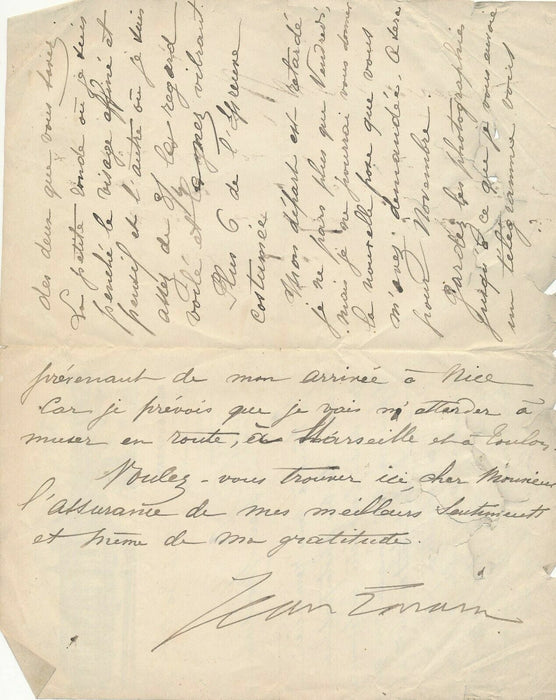 des deux que vous savez
La petite ronde où je suis
penché le visage affiné et
pensif et l'autre où je suis
assez de 3/4 le regard
voilé et le nez vibrant.
Plus 6 de l'épreuve
costumée
Mon départ est retardé
je ne pars plus que Vendredi,
mais je ne pourrai vous donner
la nouvelle pose que vous
m'avez demandée, ce sera
pour Novembre.
Gardez les photographies
jusqu'à ce que je vous envoie
un télégramme vous
prévenant de mon arrivée à Nice
Car je prévois que je vais m'attarder à
muser en route, à Marseille et à Toulon.
Voulez-vous trouver ici cher Monsieur
l'assurance de mes meilleurs Sentiments
et même de ma gratitude.
Jean Lorrain